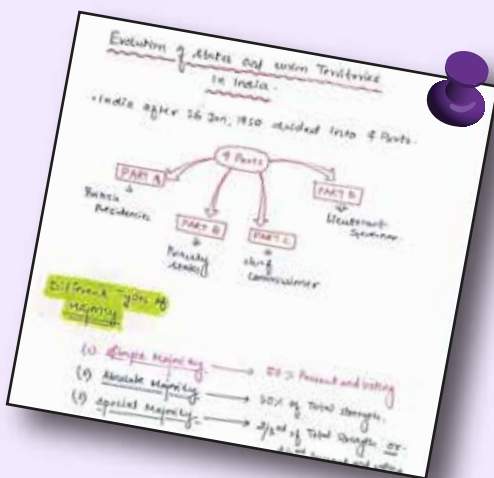 Evolution of States and Union Territories
in India.
• India after 26 Jan, 1950 divided into 4 Parts.
4 Parts
PART A
British
Presidencies
PART B
Princely
States
PART C
Chief
Commissioner
PART D
Lieutenant
Governor
Different Types of
Majority
(1) Simple Majority → 50% Present and voting
Absolute Majority → 50% of Total Strength.
Special Majority → 2/3rd of Total Strength or